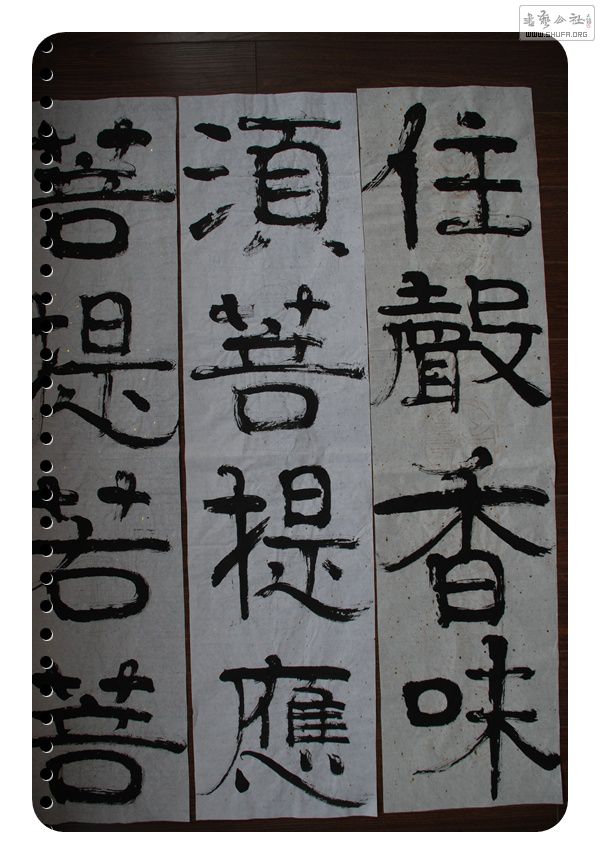 住聲香味
湏菩提應
菩提若菩
书藝公社
WWW.SHUFA.ORG